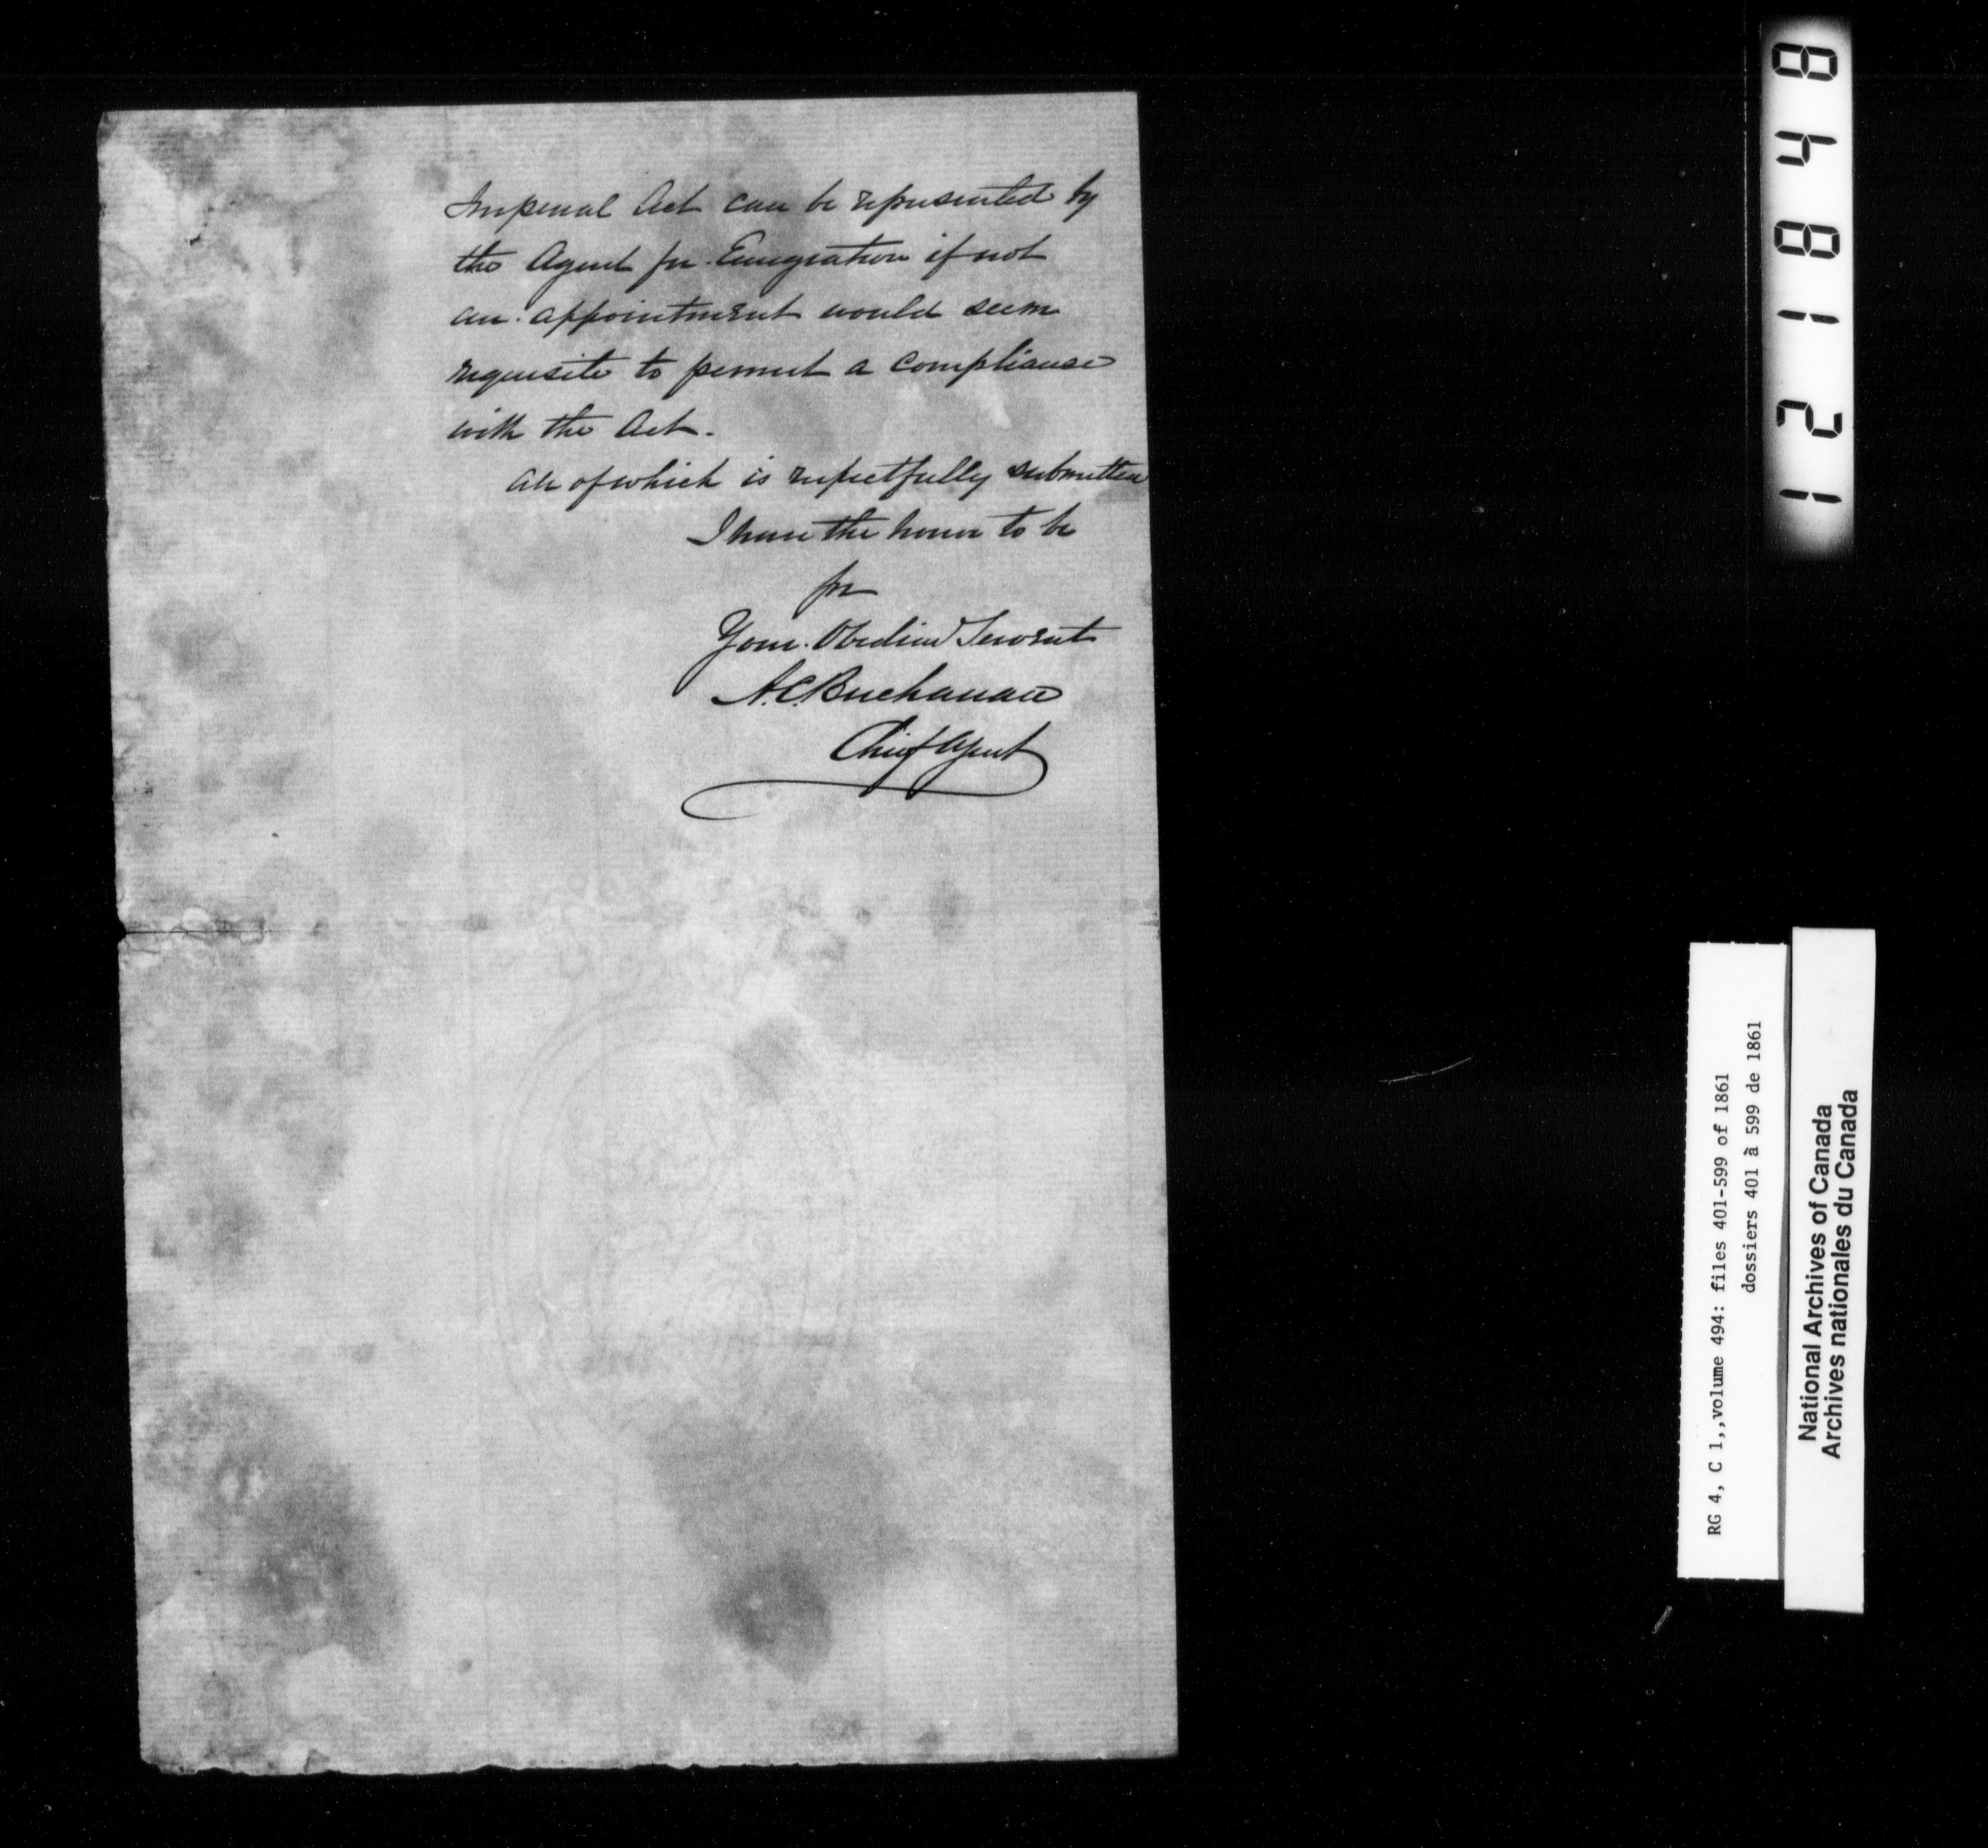 Imperial Act can be represented by
the Agent for Emigration if not
an appointment would seem
requisite to permit a compliance
with the Act.
All of which is respectfully submitted
I have the honor to be
Your Obedient Servant
A.C. Buchanan
Chief Agent
121848
RG 4, C 1,,volume 494: files 401-599 of 1861
dossiers 401 à 599 de 1861
National Archives of Canada
Archives nationales du Canada